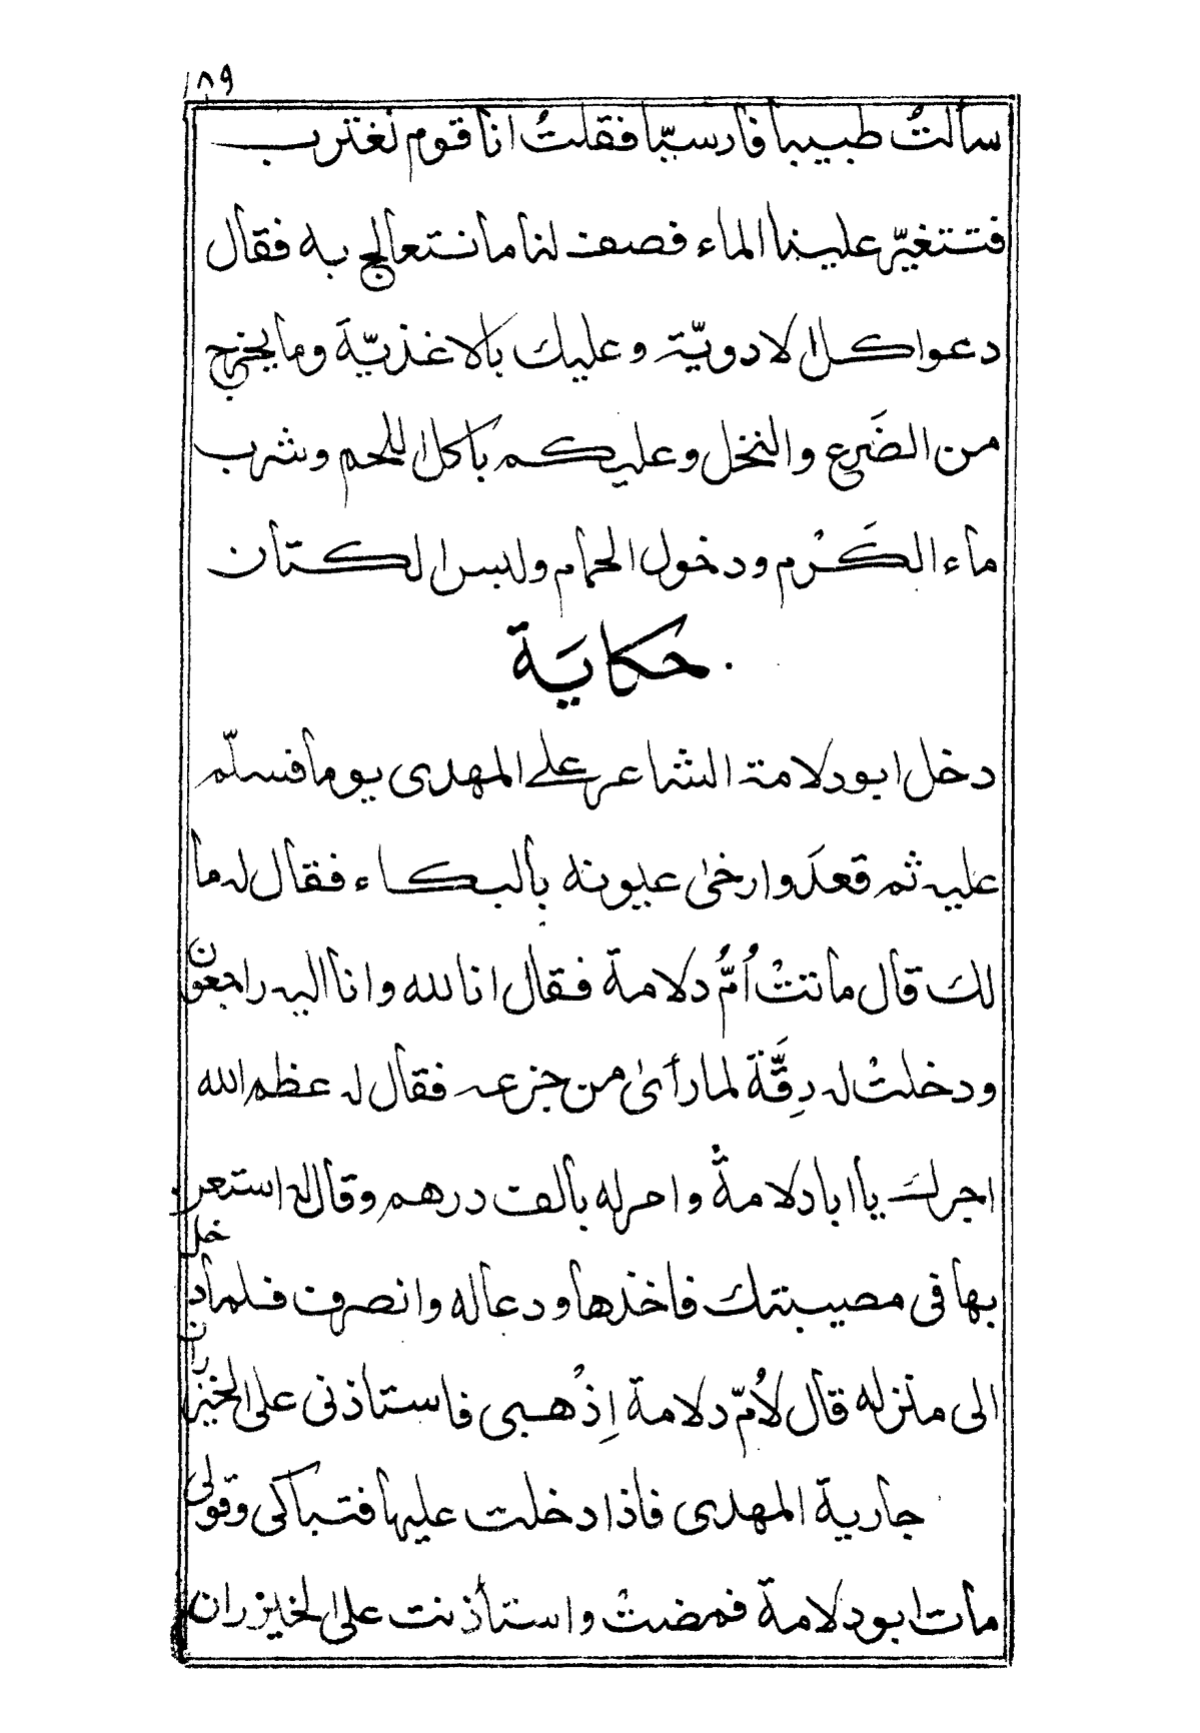 ١٨٩
سألتُ طبيبا فارسيّا فقلتُ انا قوم نغترب
فتتغيّر علينا الماء فصف لنا ما نتعالج به فقال
دعوا كل الادويّة وعليك بالاغذيّة وما يخرج
من الضَرع والنخل وعليكم باكل اللحم وشرب
ماء الكَرْم ودخول الحمام ولبس الكتان
حكايَة
دخل ابو دلامة الشاعر على المهدى يوما فسلّم
عليه ثم قعدَ وارخىٰ عيونه بالبكاء فقال له ما
لك قال ماتتْ اُمُّ دلامة فقال انا لله وانا اليه راجعون
ودخلتْ له رِقَّة لما رأىٰ من جزعه فقال له عظم الله
اجرك يا ابا دلامة وامر له بالف درهم وقال له استعن
بها فى مصيبتك فاخذها ودعا له وانصرف فلما دخل
الى منزله قال لاُمّ دلامة اِذْهبى فاستاذنى على الخيزران
جارية المهدى فاذا دخلت عليها فتباكى وقولى
مات ابو دلامة فمضتْ واستأذنت على الخيزران